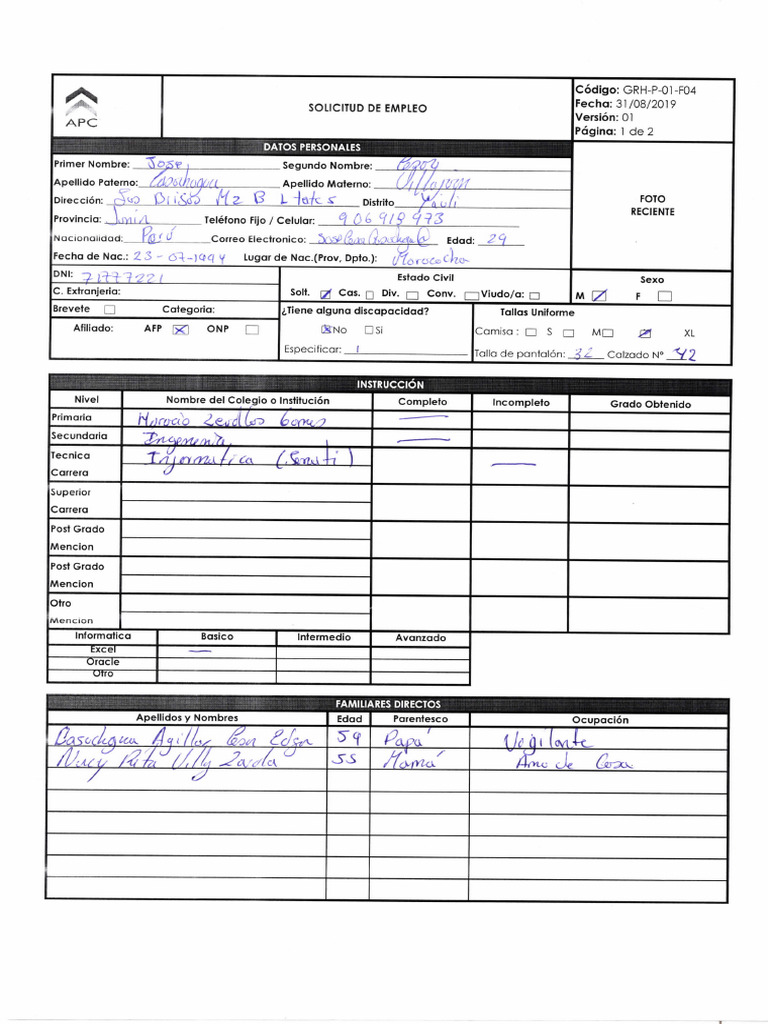 APC
SOLICITUD DE EMPLEO
Código: GRH-P-01-F04
Fecha: 31/08/2019
Versión: 01
Página: 1 de 2
DATOS PERSONALES
Primer Nombre: Jose
Segundo Nombre:
Apellido Paterno:
Apellido Materno:
Dirección: Mz B L
Distrito Yauli
Provincia: Junin
Teléfono Fijo / Celular: 906919973
Nacionalidad: Perú
Correo Electronico:
Edad: 29
Fecha de Nac.: 23-07-1994
Lugar de Nac.(Prov, Dpto.): Morococha
FOTO
RECIENTE
DNI: 71777221
C. Extranjeria:
Estado Civil
Solt. Cas. Div. Conv. Viudo/a:
Sexo
M F
Brevete Categoria:
Afiliado: AFP ONP
¿Tiene alguna discapacidad?
No Si
Especificar:
Tallas Uniforme
Camisa : S M XL
Talla de pantalón: 32 Calzado N° 42
INSTRUCCIÓN
Nivel Nombre del Colegio o Institución Completo Incompleto Grado Obtenido
Primaria Horacio Zevallos Games
Secundaria Ingenieria
Tecnica Informatica (Senati)
Carrera
Superior
Carrera
Post Grado
Mencion
Post Grado
Mencion
Otro
Mencion
Informatica Basico Intermedio Avanzado
Excel
Oracle
Otro
FAMILIARES DIRECTOS
Apellidos y Nombres Edad Parentesco Ocupación
59 Papá Vigilante
55 Mamá Ama de Casa